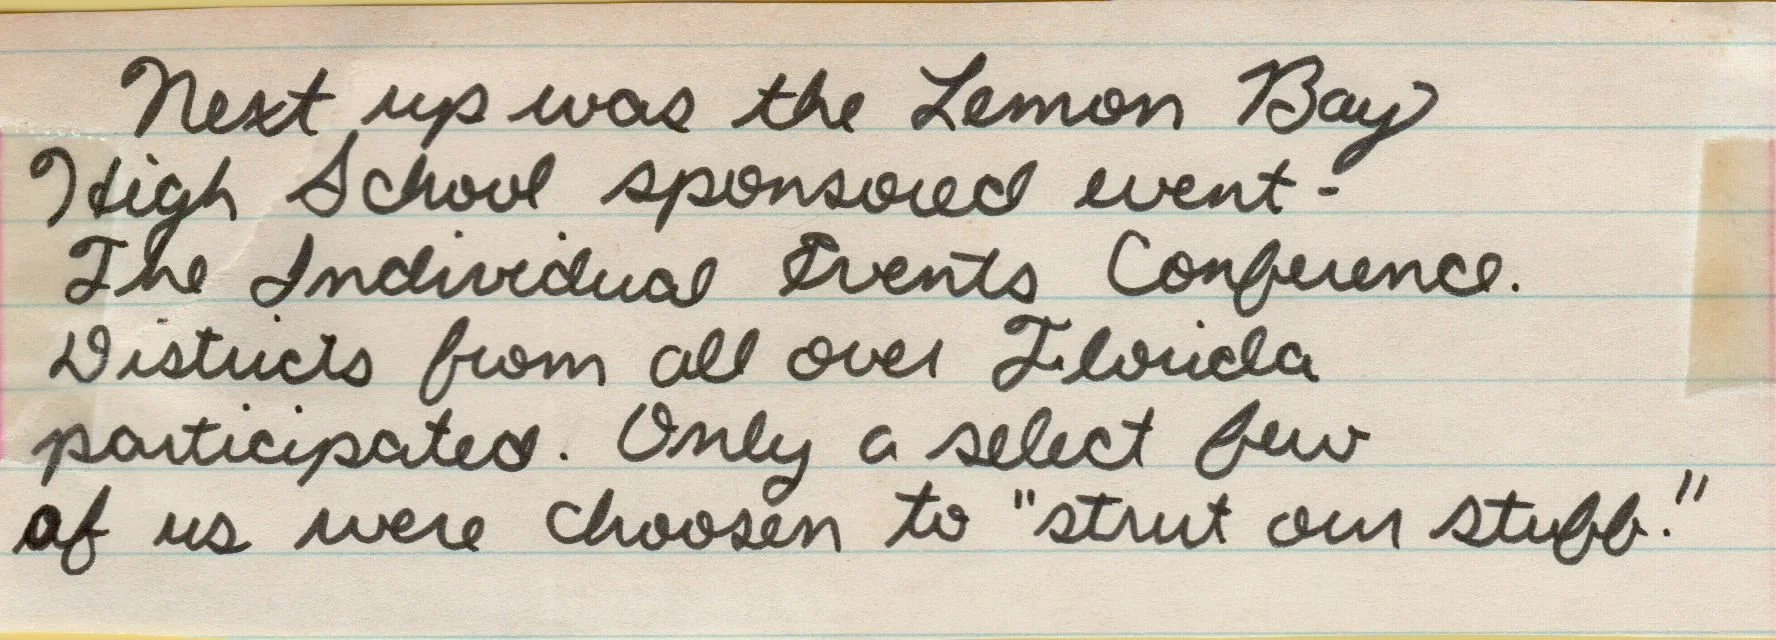 Next up was the Lemon Bay
High School sponsored event-
The Individual Events Conference.
Districts from all over Florida
participated. Only a select few
of us were choosen to "strut our stuff."